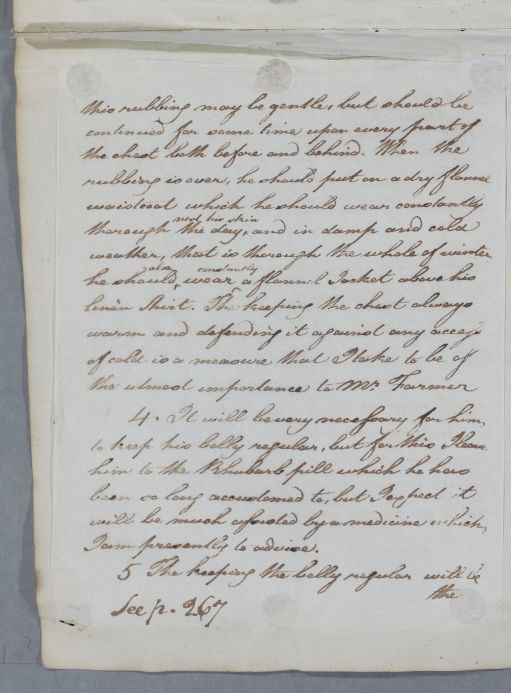 this rubbing may be gentle, but should be
continued for some time upon every part of
the chest both before and behind. When the
rubbing is over, he should put on a dry flannel
waistcoat which he should wear constantly
next his skin
thorough the day, and in damp and cold
weather, that is thorough the whole of winter
also constantly
he should wear a flannel Jacket above his
linen Shirt. The keeping the chest always
warm and defending it against any access
of cold is a measure that I take to be of
the utmost importance to Mr Farmer
4. It will be very necessary for him,
to keep his belly regular, but for this I leave
him to the Rhubarb pill which he has
been so long accustomed to, but I expect it
will be much assisted by a medicine which,
I am presently to advise.
5 The keeping the belly regular will be
the
See p. 267